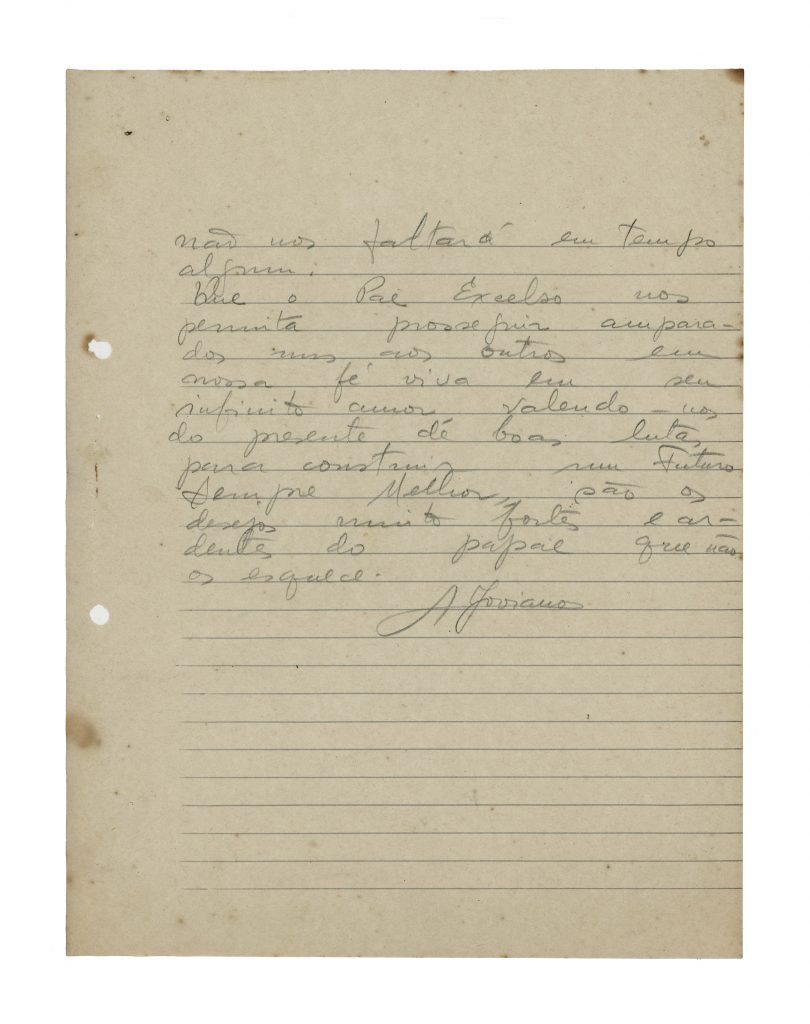 não nos faltará em tempo
algum.
Que o Pai Excelso nos
permita prosseguir ampara-
dos uns aos outros em
nossa fé viva em seu
infinito amor valendo-nos
do presente de boas lutas
para construir um Futuro
Sempre Melhor, são os
desejos muito fortes e ar-
dentes do papae que não
os esquece.
A Joviano